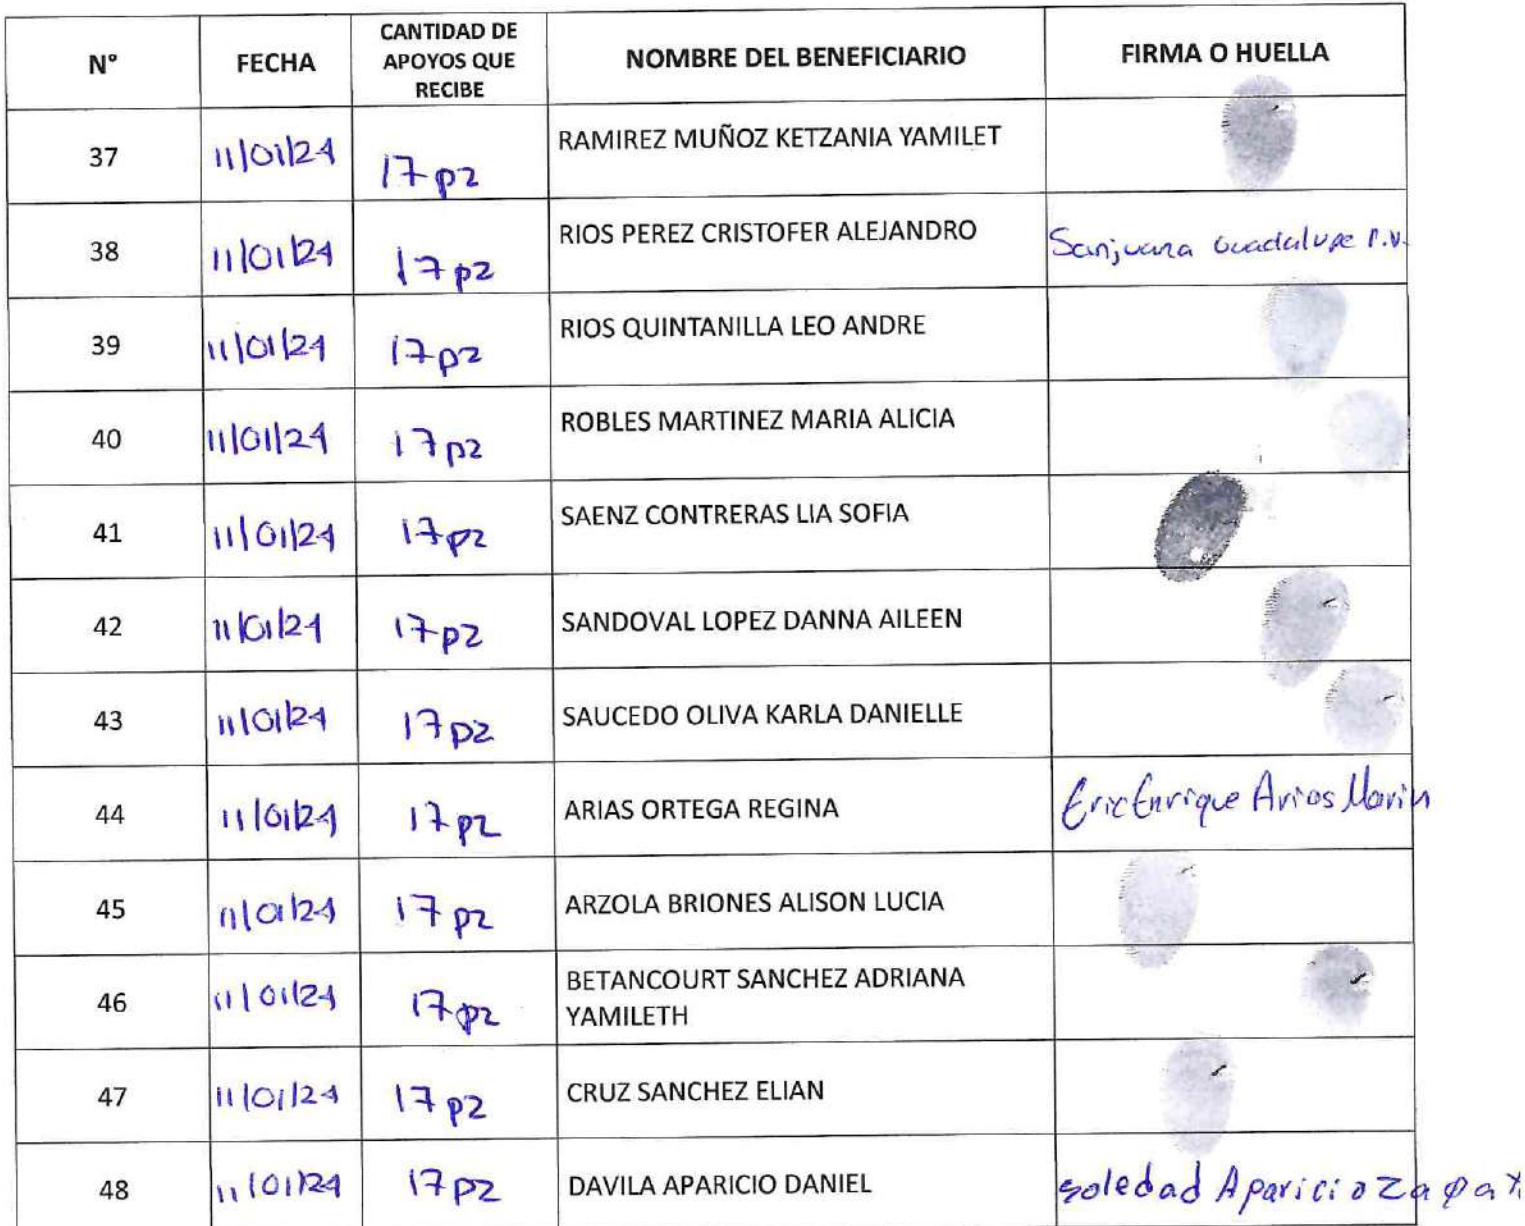 N° FECHA CANTIDAD DE APOYOS QUE RECIBE NOMBRE DEL BENEFICIARIO FIRMA O HUELLA
37 11/01/24 17 pz RAMIREZ MUÑOZ KETZANIA YAMILET
38 11/01/24 17 pz RIOS PEREZ CRISTOFER ALEJANDRO Sanjuana Guadalupe P.V.
39 11/01/24 17 pz RIOS QUINTANILLA LEO ANDRE
40 11/01/24 17 pz ROBLES MARTINEZ MARIA ALICIA
41 11/01/24 17 pz SAENZ CONTRERAS LIA SOFIA
42 11/01/24 17 pz SANDOVAL LOPEZ DANNA AILEEN
43 11/01/24 17 pz SAUCEDO OLIVA KARLA DANIELLE
44 11/01/24 17 pz ARIAS ORTEGA REGINA Eric Enrique Arias Marin
45 11/01/24 17 pz ARZOLA BRIONES ALISON LUCIA
46 11/01/24 17 pz BETANCOURT SANCHEZ ADRIANA
YAMILETH
47 11/01/24 17 pz CRUZ SANCHEZ ELIAN
48 11/01/24 17 pz DAVILA APARICIO DANIEL soledad Aparicio